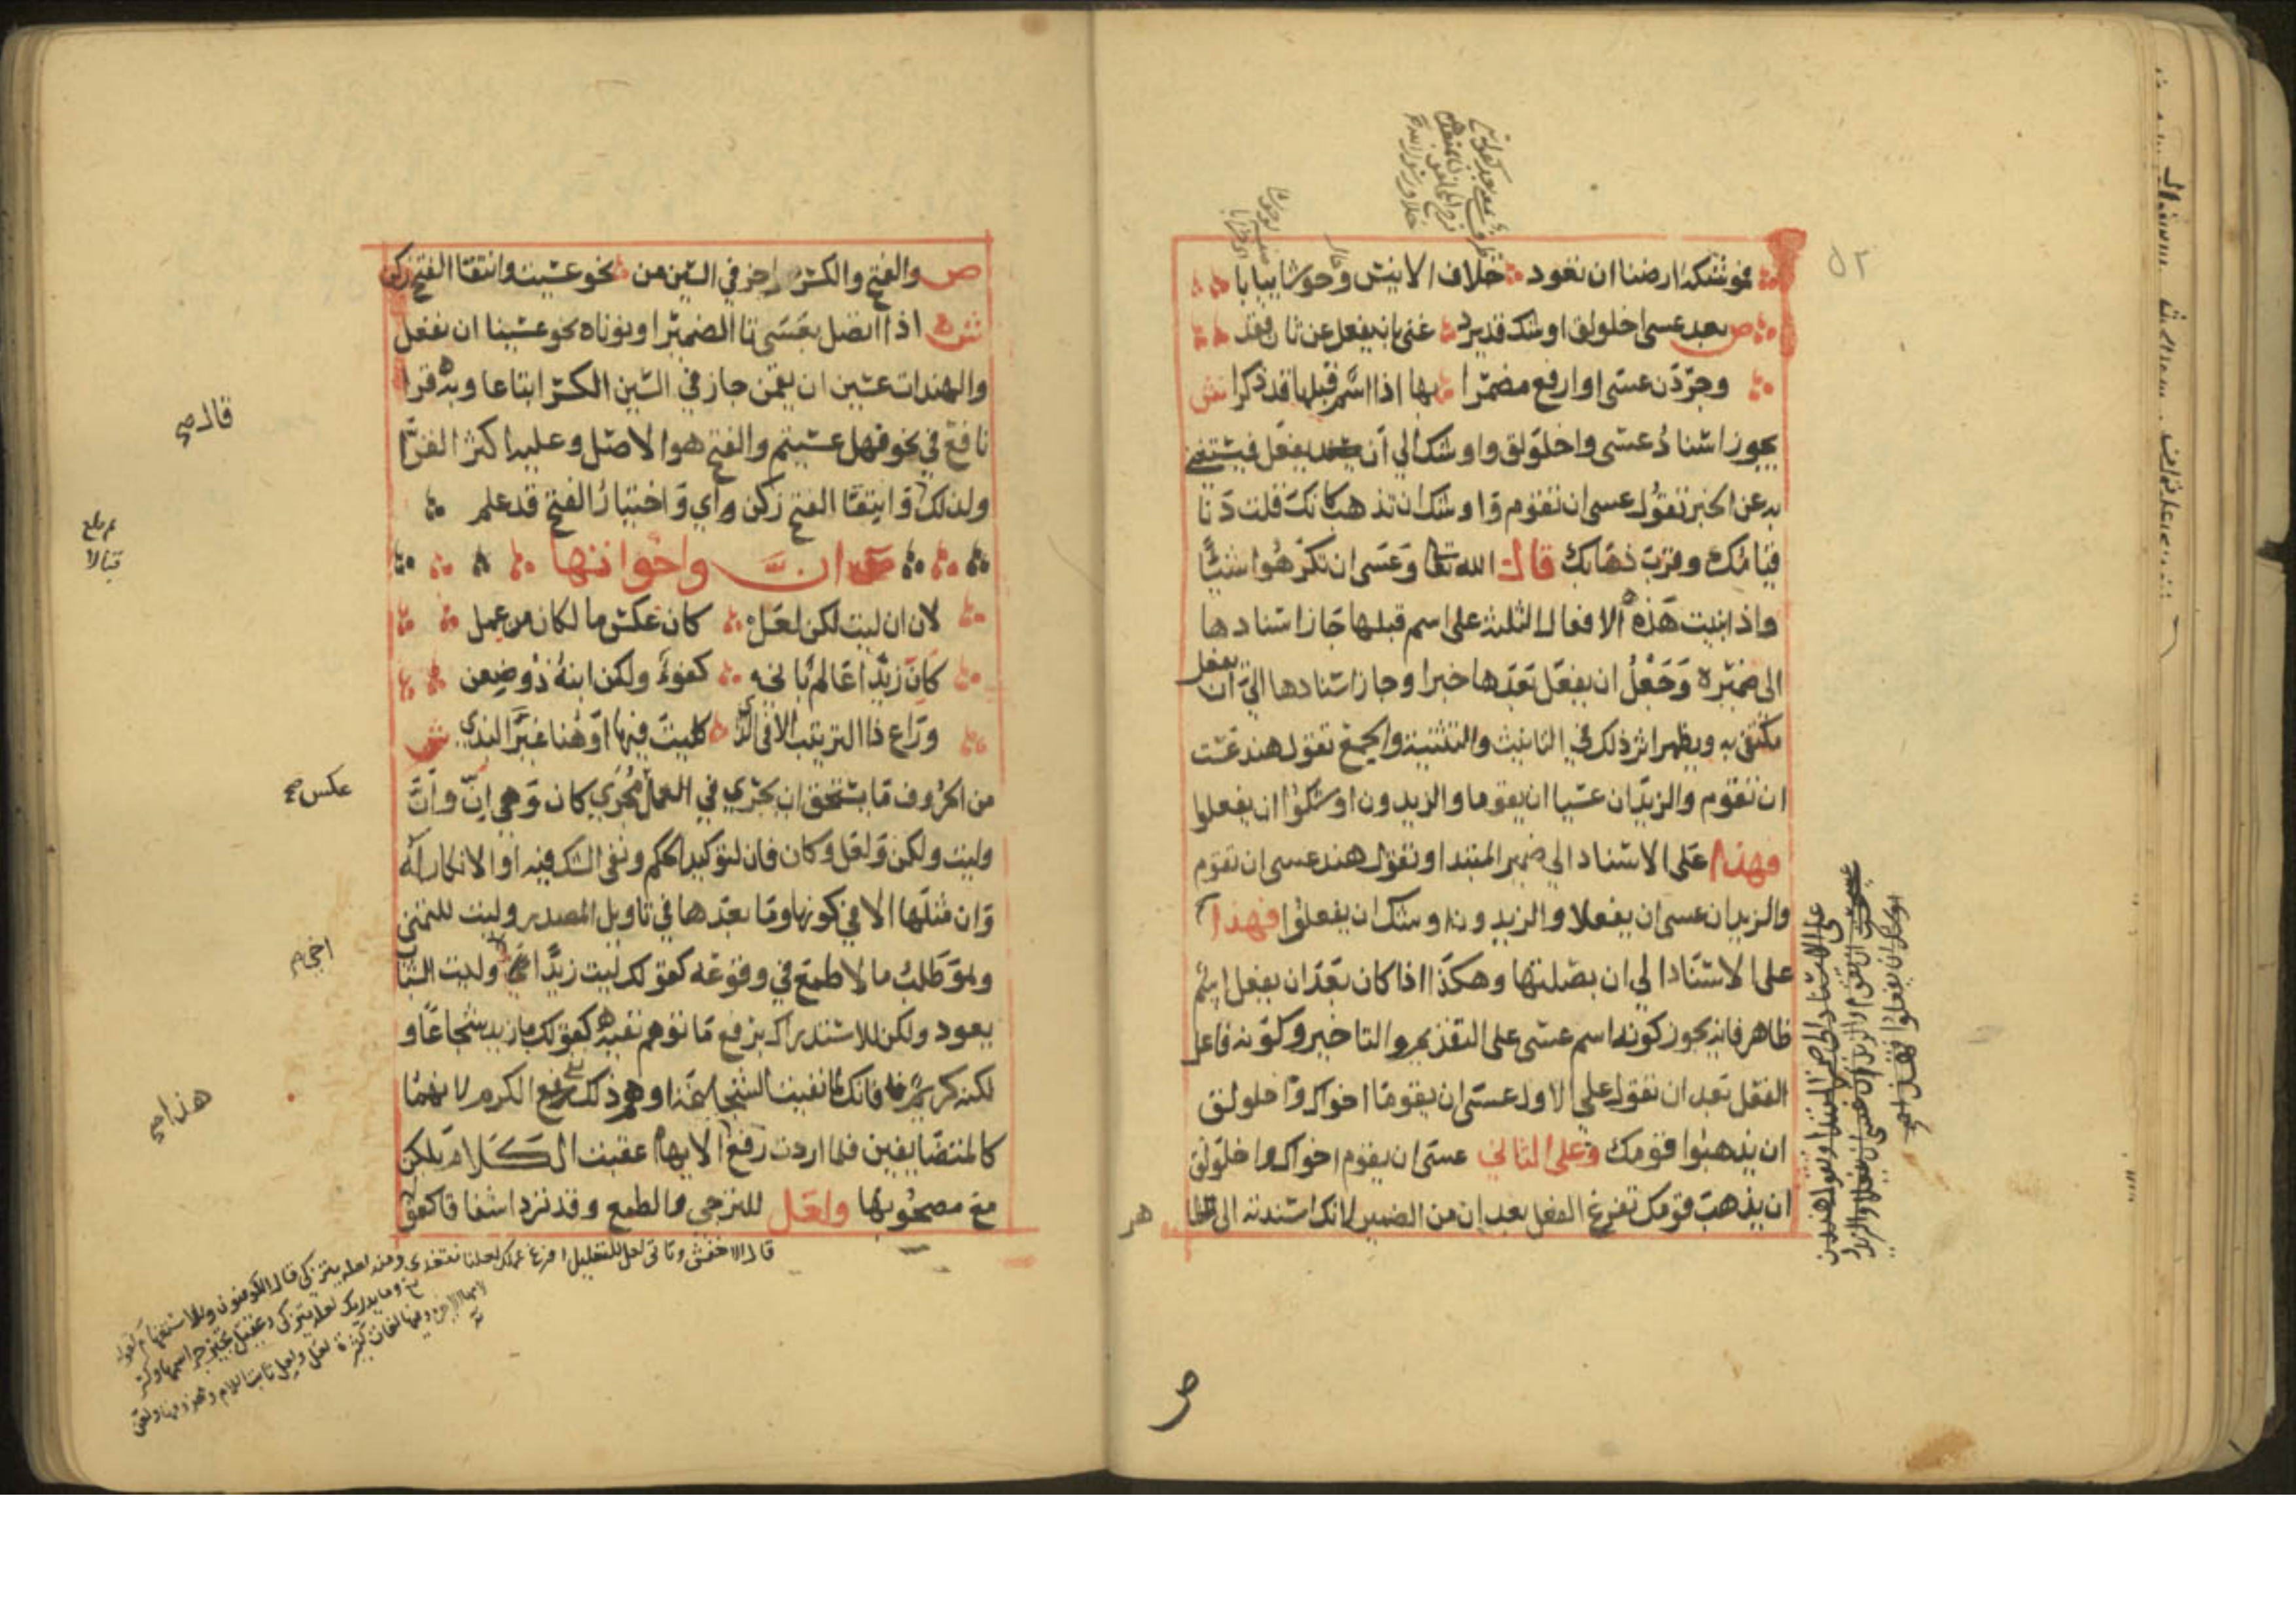 ٥٢
فموشكة ارضنا ان تعود خلاف الانيس وحوشا يبابا
ص بعد عسى اخلولق اوشك قد يرد غنى بان يفعل عن ثان فقد
وجردن عسى او ارفع مضمرا بها اذا اسم قبلها قد ذكرا ش
يجوز اسناد عسى واخلولق واوشك الى ان يفعل فيستغنى
به عن الخبر تقول عسى ان تقوم واوشك ان تذهب كانك قلت دنا
قيامك وقرب ذهابك قال الله تعا وعسى ان تكرهوا شيئا
واذا بنيت هذه الافعال الثلثه على اسم قبلها جاز اسنادها
الى ضميره وجعل ان يفعل بعدها خبرا وجاز اسنادها الى ان يفعل
مكتفى به ويظهر اثر ذلك في التانيث والتثنية والجمع تقول هند عست
ان تقوم والزيدان عسيا ان يقوما والزيدون اوشكوا ان يفعلوا
فهذا على الاسناد الى ضمير المبتدا وتقول هند عسى ان تقوم
والزيدان عسى ان يفعلا والزيدون اوشك ان يفعلوا فهذا
على الاسناد الى ان بصلتها وهكذا اذا كان بعد ان يفعل اسم
ظاهر فانه يجوز كونه اسم عسى على التقديم والتاخير وكونه فاعل
الفعل بعد ان تقول على الاول عسى ان يقوما اخواك واخلولق
ان يذهبوا قومك وعلى الثاني عسى ان يقوم اخواك واخلولق
ان يذهب قومك تفرغ الفعل بعد ان من الضمير لانك اسندته الى
على الاسناد الى ضمير المبتدا وتقول هند
ان تقوم والزيدان عسى ان يفعلا والزيدون
اوشك ان يفعلوا فهذا
ص والفتح والكسر اجز في السين من نحو عسيت وانتقا الفتح زكن
ش اذا اتصل بعسى تا الضمير او نوناه نحو عسينا ان نفعل
والهندات عسين ان يقمن جاز في السين الكسر اتباعا وبه قرا
نافع في نحو فهل عسيتم والفتح هو الاصل وعليه اكثر القرا
ولذلك قا وانتقا الفتح زكن اي واختيار الفتح قد علم
ان واخواتها
لان ان ليت لكن لعل كان عكس ما لكان من عمل
كان زيدا عالم باني كفو ولكن ابنه ذو ضغن
وراع ذا الترتيب الا في الذي كليت فيها او هنا غير البذي ش
من الحروف ما يستحق ان يجري في العمل مجرى كان وهي ان وان
وليت ولكن ولعل وكان فان لتوكيد الحكم ونفى الشك فيه او الانكار له
وان مثلها الا في كونها وما بعدها في تاويل المصدر وليت للتمني
وهو طلب ما لا طمع في وقوعه كقولك ليت زيدا ولیت الشبا
يعود ولكن للاستدراك برفع ما توهم نفيه كقولك ما زيد شجاعا و
لكنه كريم فانك لما نفيت الشجاعة اوهم ذلك رفع الكرم لانهما
كالمتضايفين فلما اردت رفع الايهام عقبت الكلام بلكن
مع مصحوبها ولعل للترجي والطمع وقد ترد اشفاقا كقو
قال صح
عكس صح
هذا صح
قال الاخفش وتاتى لعل للتعليل افرغ عملك لعلنا نتغدى ومنه لعله يتزكى قال الكوفيون وللاستفهام كقوله
وما يدريك لعله يزكى وعقيل تجيز جر اسمها